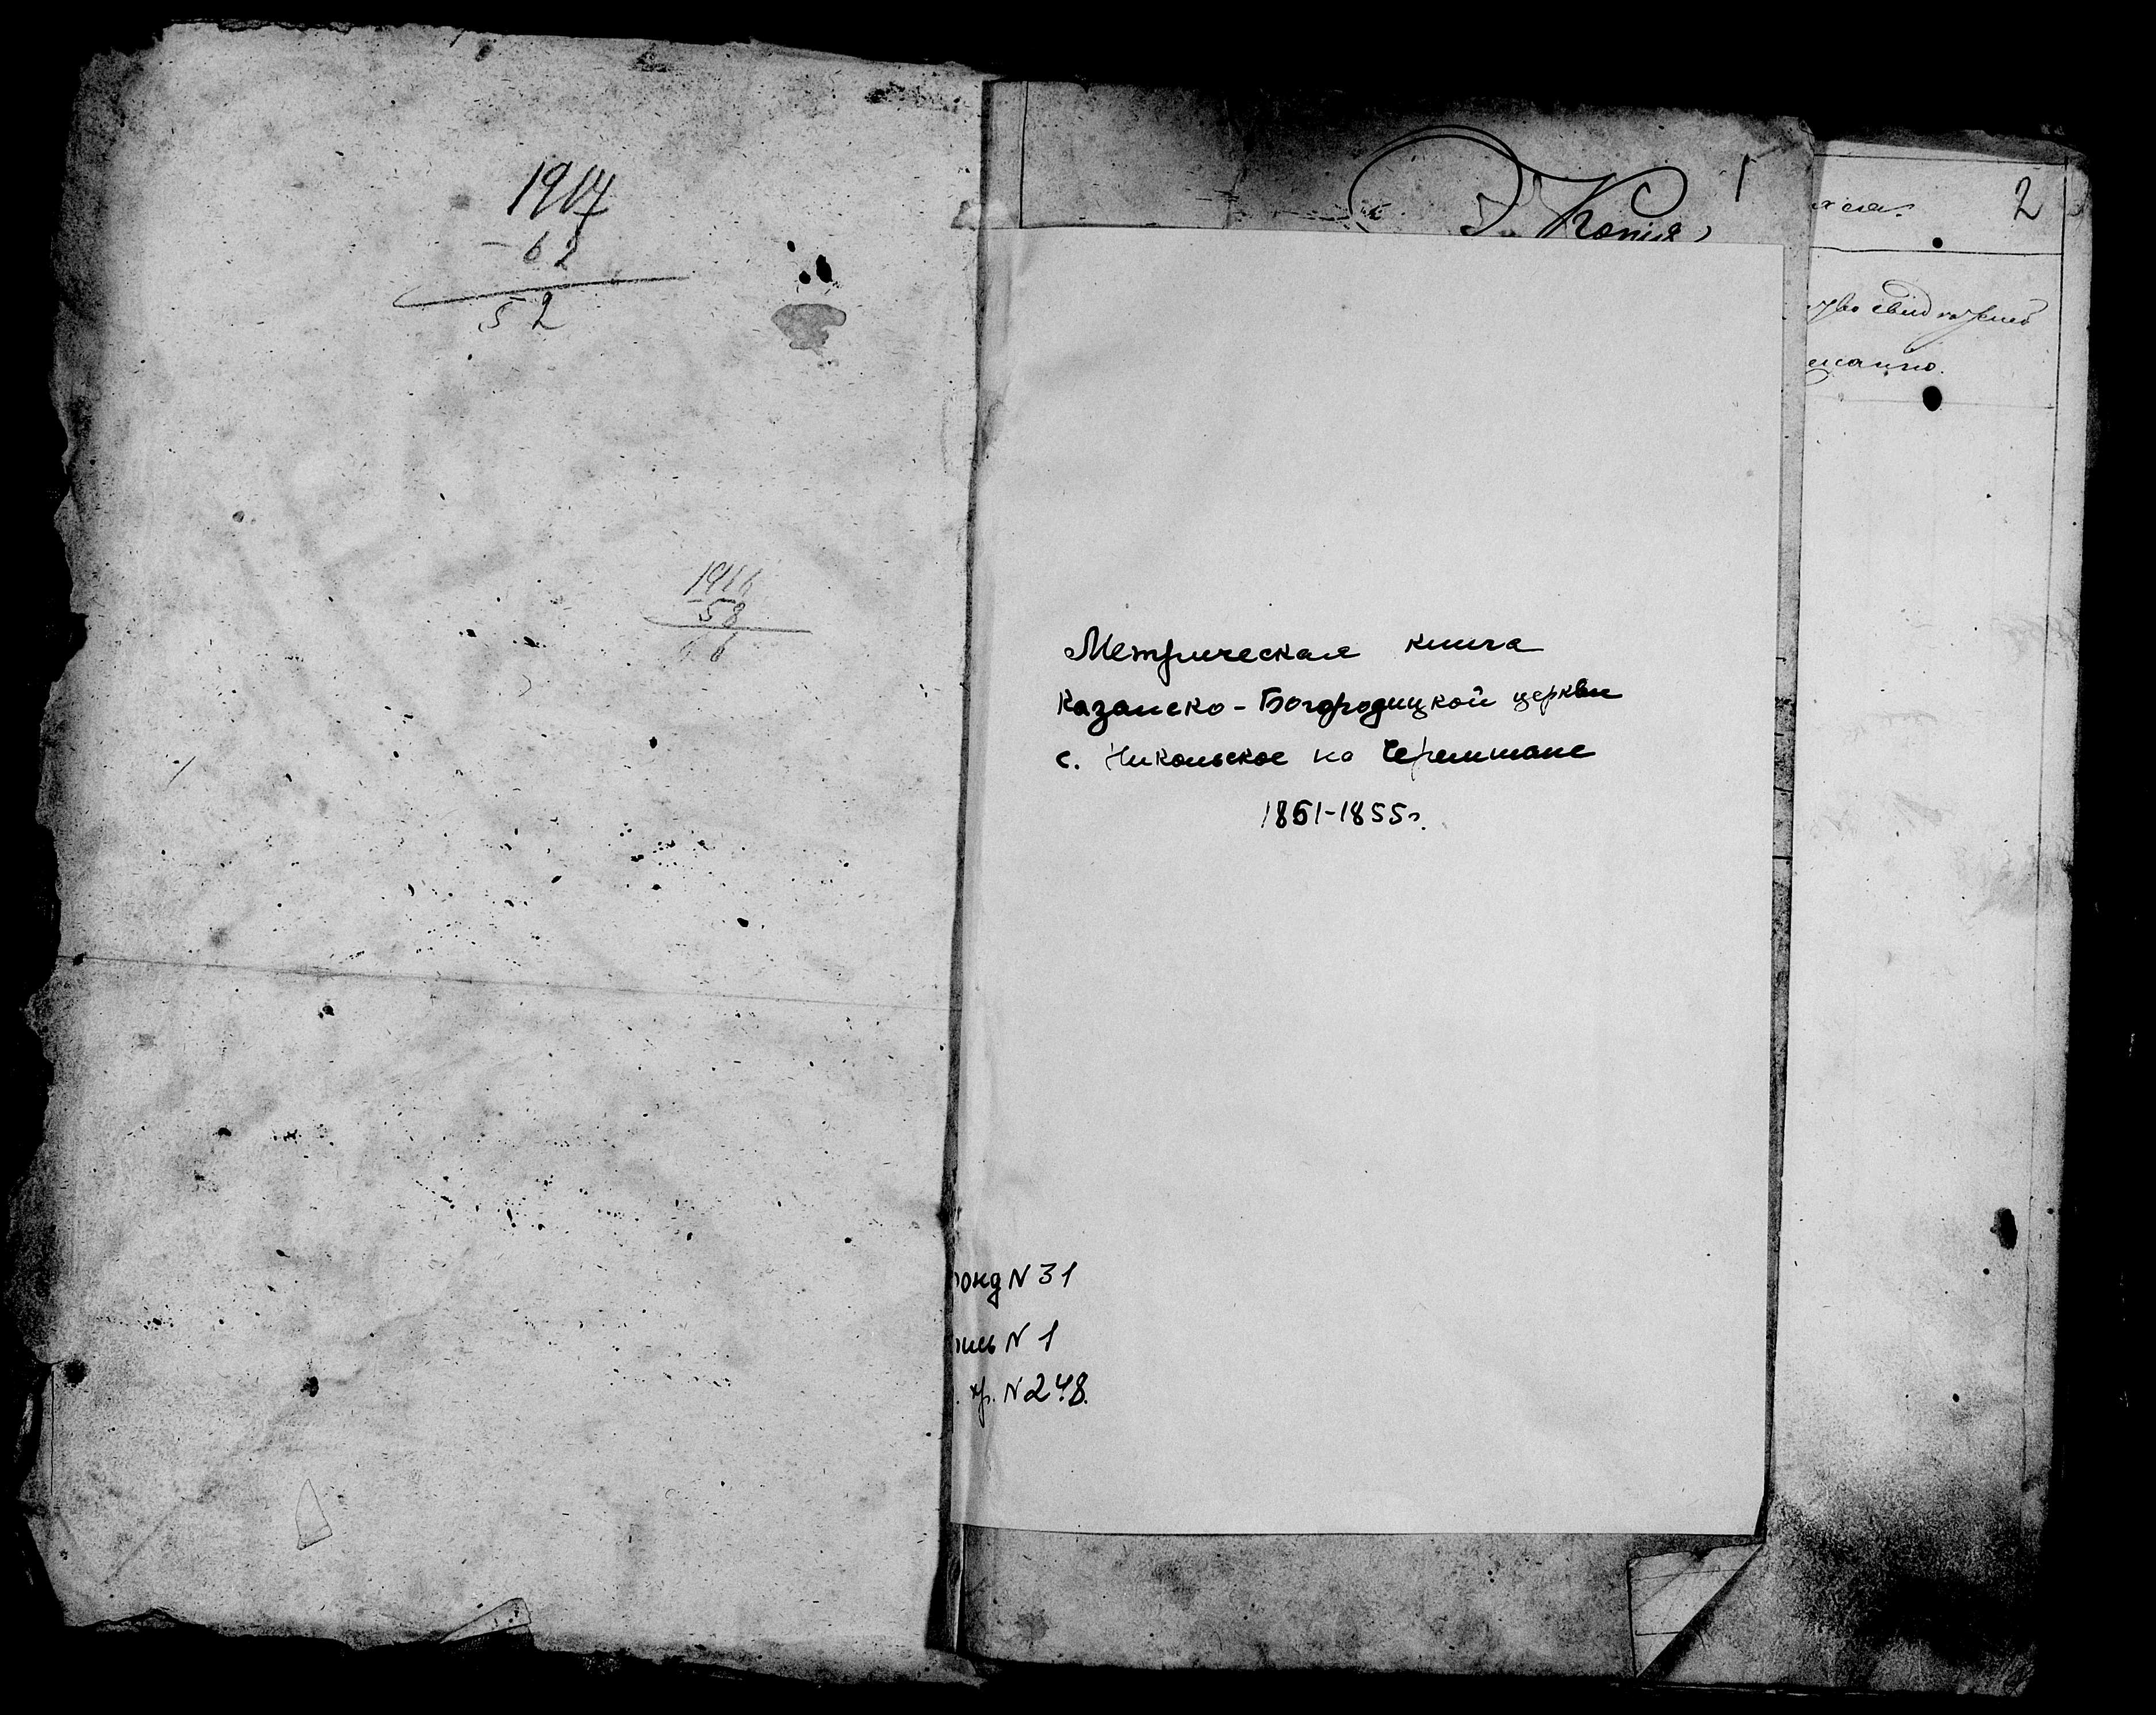 1914
- 62
52
1916
58
66
1
Копия
2
Метрическая книга
Казанско-Богородицкой церкви
с. Никольское на Черемшане
1851-1855г.
онд N 31
пись N 1
. хр. N 248.